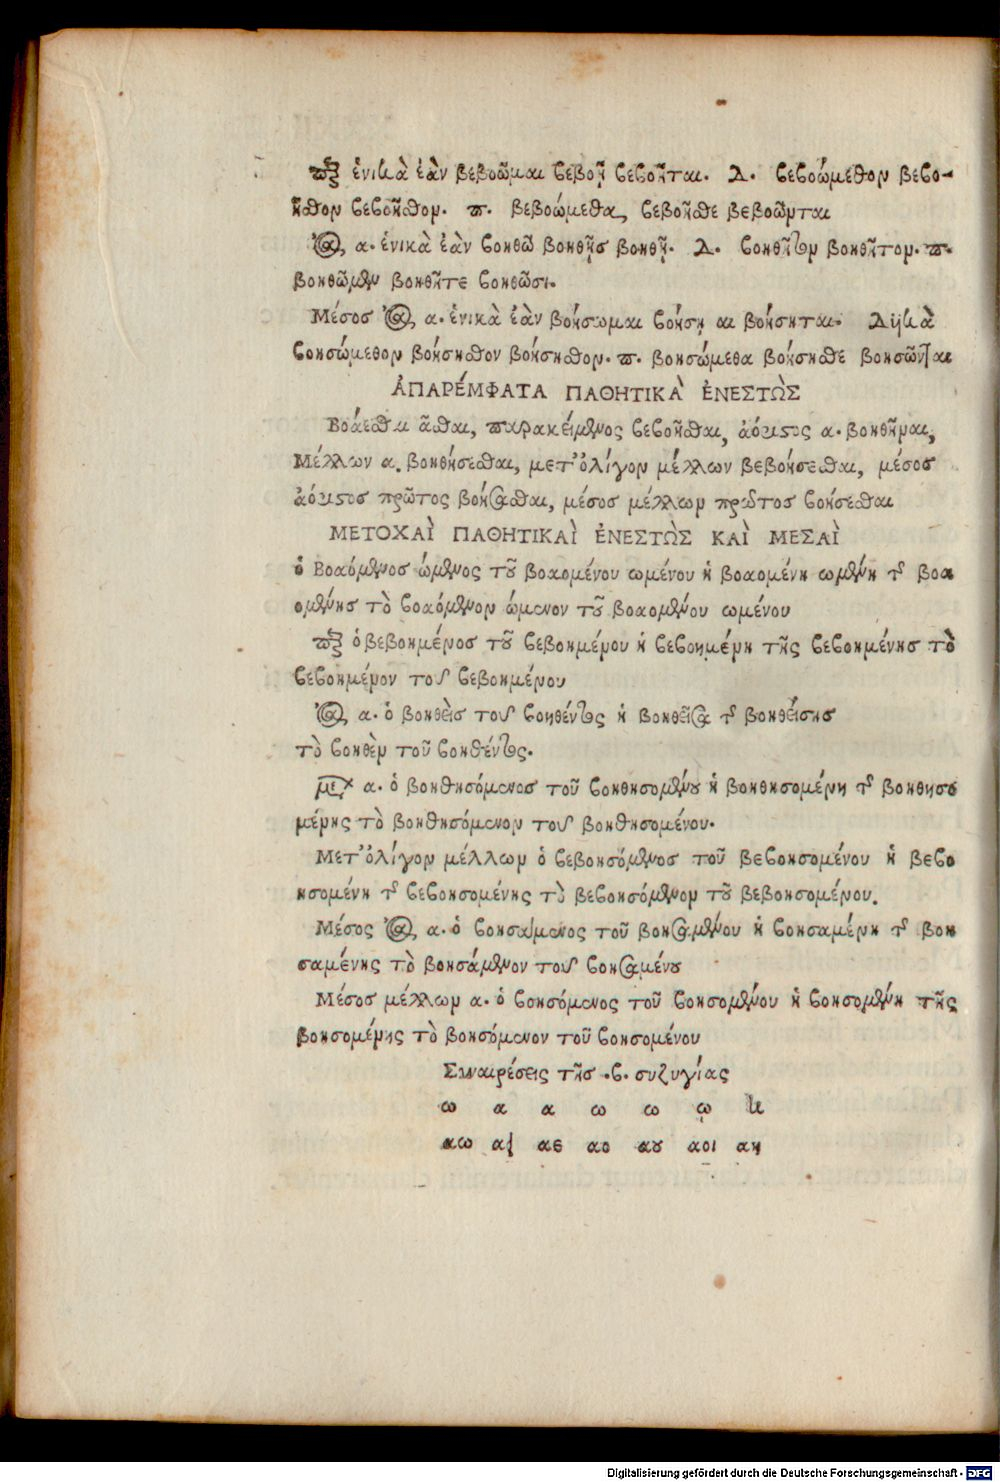 πξ ἑνικὰ ἐὰν βεβοῶμαι βεβοῇ βεβοῆται. Δ. βεβοώμεθον βεβο-
ῆσθον βεβοῆσθον. π. βεβοώμεθα, βεβοῆσθε βεβοῶνται
α. ἑνικὰ ἐὰν βοηθῶ βοηθῇς βοηθῇ. Δ. βοηθῆτον βοηθῆτον. π.
βοηθῶμεν βοηθῆτε βοηθῶσι.
Μέσος α. ἑνικὰ ἐὰν βοήσωμαι βοήσῃ αι βοήσηται. Δυϊκὰ
βοησώμεθον βοήσησθον βοήσησθον. π. βοησώμεθα βοήσησθε βοησῶνται
ἈΠΑΡΈΜΦΑΤΑ ΠΑΘΗΤΙΚᾺ ἘΝΕΣΤῺΣ
Βοάεσθαι ᾶσθαι, παρακείμενος βεβοῆσθαι, ἀόριστος α. βοηθῆναι,
Μέλλων α. βοηθήσεσθαι, μετ' ὀλίγον μέλλων βεβοήσεσθαι, μέσος
ἀόριστος πρῶτος βοήσασθαι, μέσος μέλλων πρῶτος βοήσεσθαι
ΜΕΤΟΧΑῚ ΠΑΘΗΤΙΚΑῚ ἘΝΕΣΤῺΣ ΚΑῚ ΜΕΣΑῚ
ὁ Βοαόμενος ώμενος τοῦ βοαομένου ωμένου ἡ βοαομένη ωμένη τῆς βοα
ομένης τὸ βοαόμενον ώμενον τοῦ βοαομένου ωμένου
πξ ὁ βεβοημένος τοῦ βεβοημένου ἡ βεβοημένη τῆς βεβοημένης τὸ
βεβοημένον τοῦ βεβοημένου
α. ὁ βοηθεὶς τοῦ βοηθέντος ἡ βοηθεῖσα τῆς βοηθείσης
τὸ βοηθὲν τοῦ βοηθέντος.
με α. ὁ βοηθησόμενος τοῦ βοηθησομένου ἡ βοηθησομένη τῆς βοηθησο
μένης τὸ βοηθησόμενον τοῦ βοηθησομένου.
Μετ' ὀλίγον μέλλων ὁ βεβοησόμενος τοῦ βεβοησομένου ἡ βεβο
ησομένη τῆς βεβοησομένης τὸ βεβοησόμενον τοῦ βεβοησομένου.
Μέσος α. ὁ βοησάμενος τοῦ βοησαμένου ἡ βοησαμένη τῆς βοη
σαμένης τὸ βοησάμενον τοῦ βοησαμένου
Μέσος μέλλων α. ὁ βοησόμενος τοῦ βοησομένου ἡ βοησομένη τῆς
βοησομένης τὸ βοησόμενον τοῦ βοησομένου
Συναιρέσεις τῆς .β. συζυγίας
ω α α ω ω ῳ
αω αει αε αο αου αοι αη
Digitalisierung gefördert durch die Deutsche Forschungsgemeinschaft - DFG